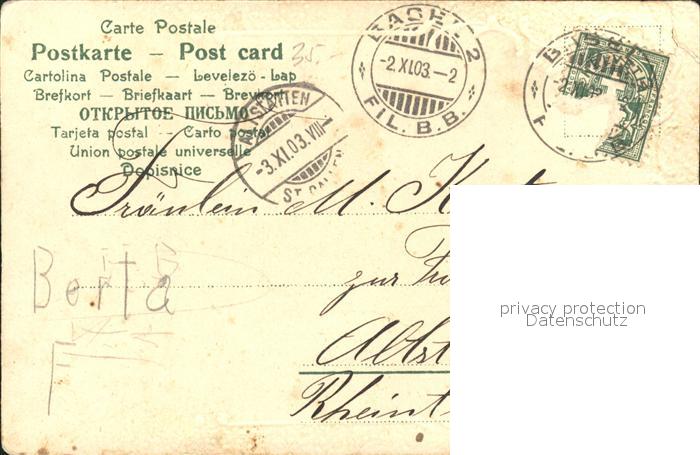 Carte Postale
Postkarte — Post card
Cartolina Postale — Levelező-Lap
Brefkort — Briefkaart — Brevkort
ОТКРЫТОЕ ПИСЬМО
Tarjeta postal — Carto postal
Union postale universelle
Dopisnice
35.-
BASEL 2
-2.XI.03.-2
FIL. B.B.
-3.XI.03.VIII-
ST. GALLEN
Fräulein M. K
zur
Altst
Rheint
Berta
privacy protection
Datenschutz